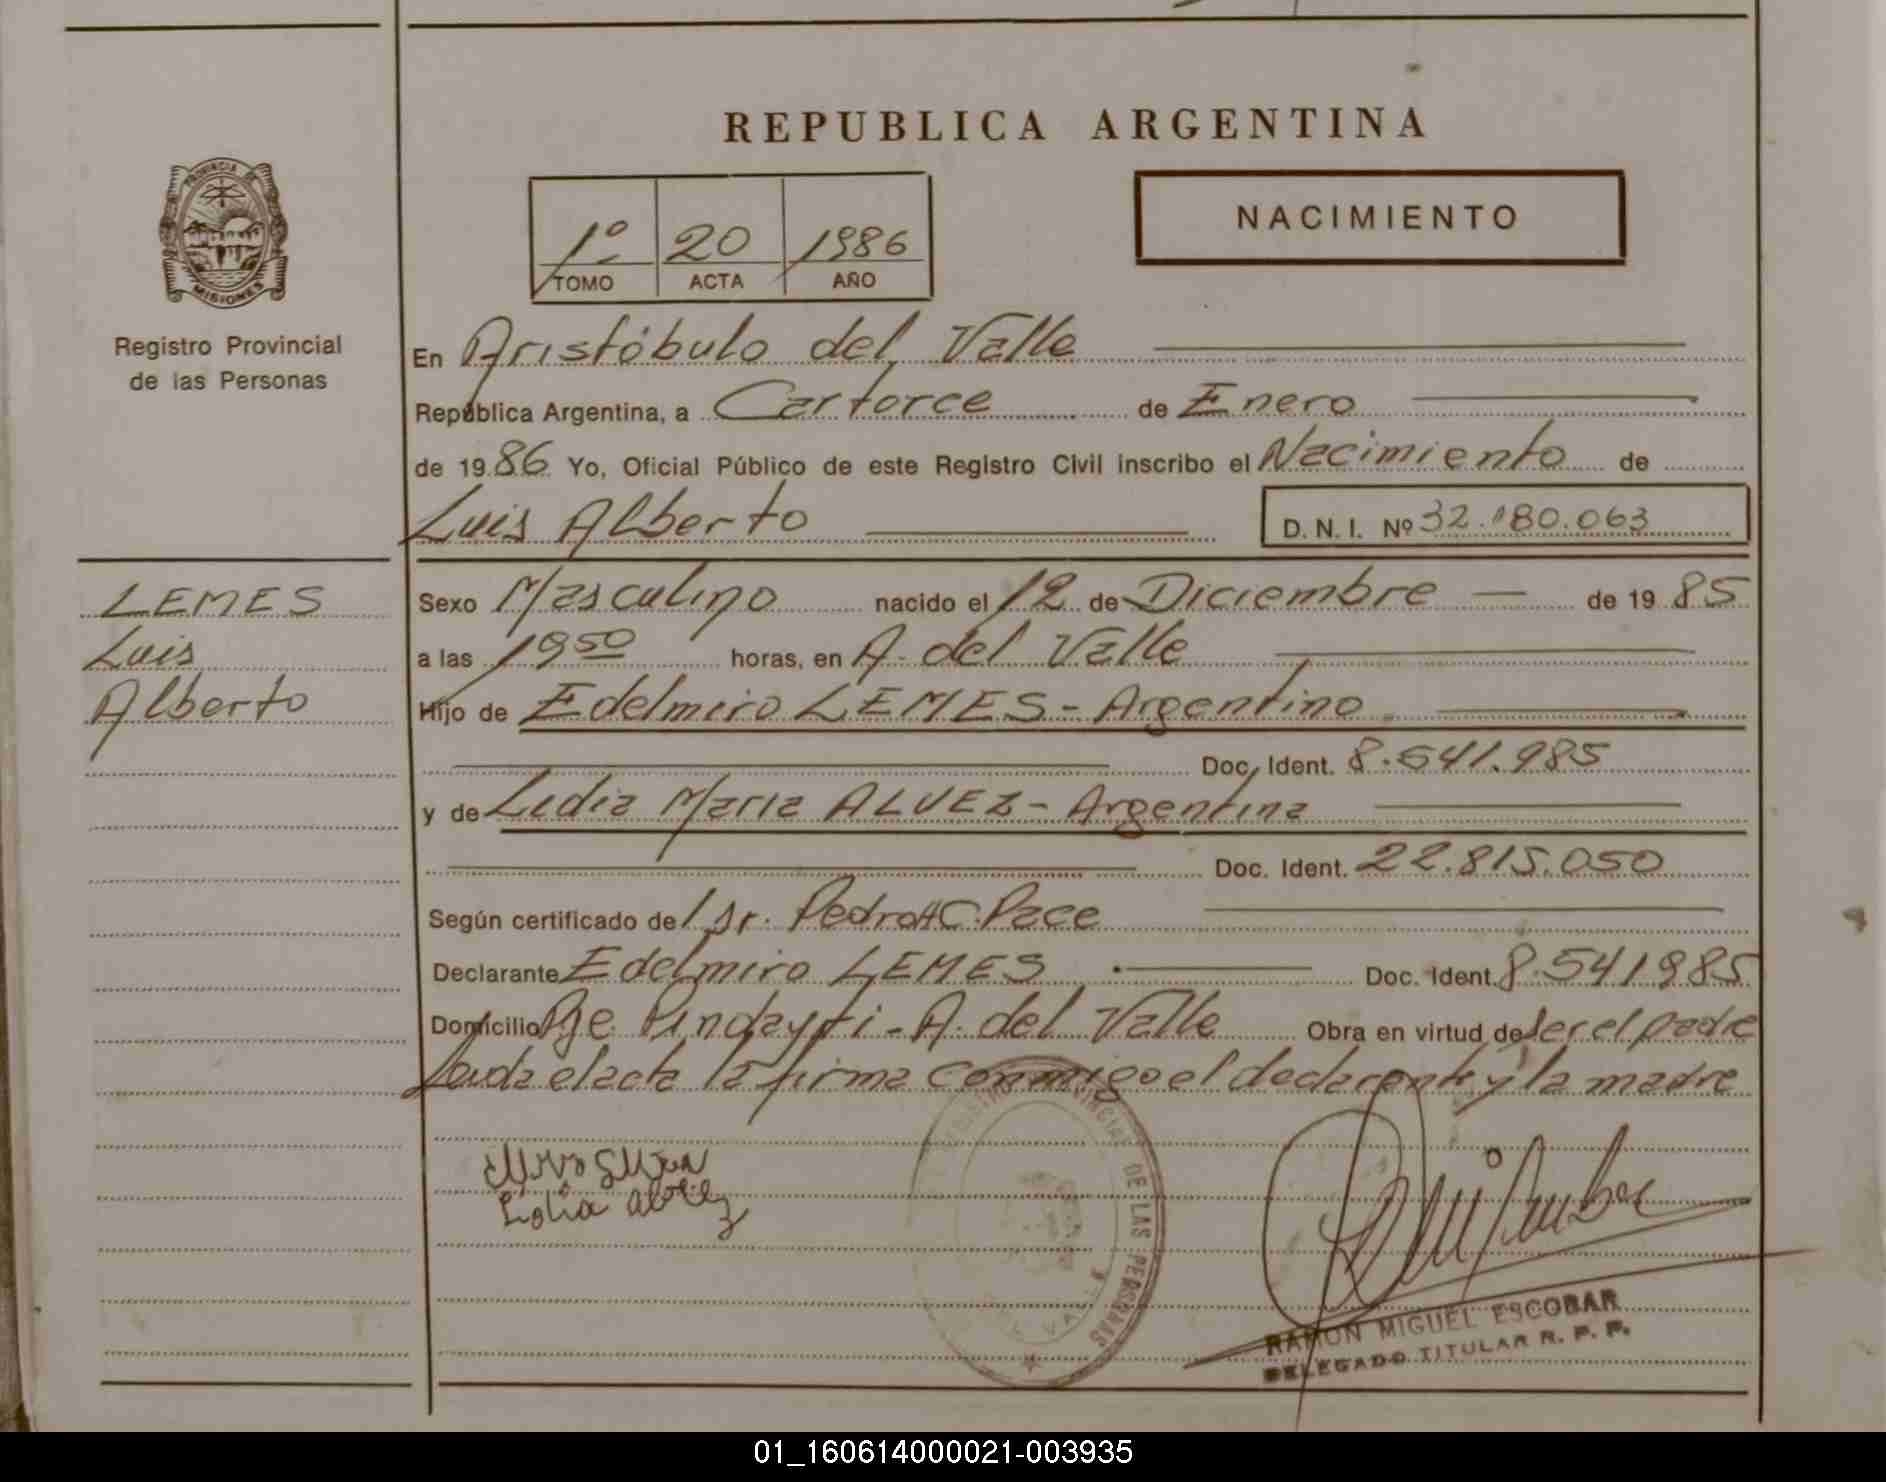 REPUBLICA ARGENTINA
PROVINCIA DE
MISIONES
Registro Provincial
de las Personas
1º 20 1986
TOMO ACTA AÑO
NACIMIENTO
En Aristóbulo del Valle
República Argentina, a Cartorce de Enero
de 1986 Yo, Oficial Público de este Registro Civil inscribo el Nacimiento de
Luis Alberto D. N. I. Nº 32.180.063
LEMES
Luis
Alberto
Sexo Masculino nacido el 12 de Diciembre de 1985
a las 19 50 horas, en A. del Valle
Hijo de Edelmiro LEMES - Argentino
Doc. Ident. 8.541.985
y de Lidia Maria ALVEZ - Argentina
Doc. Ident. 22.815.050
Según certificado del Sr. Pedro C. Pace
Declarante Edelmiro LEMES Doc. Ident. 8.541985
Domicilio Pje. Pindayti - A. del Valle Obra en virtud de ser el padre
Leida el acta la firma conmigo el declarante y la madre
Lidia
DE LAS PERSONAS
VALLE
RAMON MIGUEL ESCOBAR
DELEGADO TITULAR R. P. P.
01_160614000021-003935